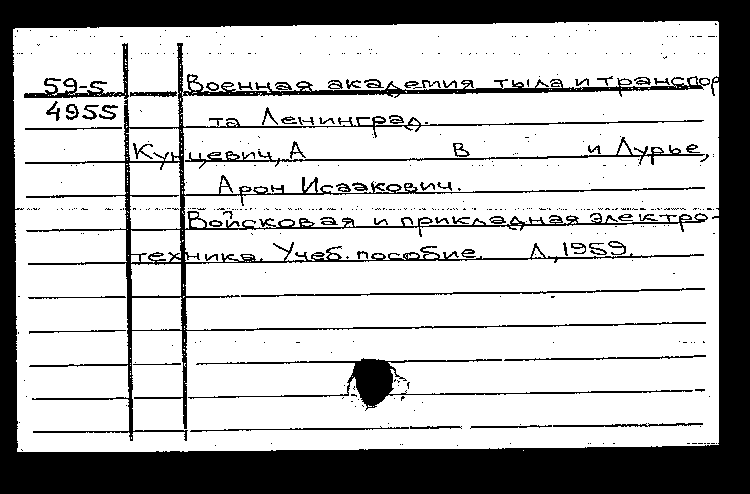 59-5 Военная академия тыла и транспор
4955 та Ленинград.
Кунцевич, А В и Лурье,
Арон Исаакович.
Войсковая и прикладная электро-
техника. Учеб. пособие. Л., 1959.